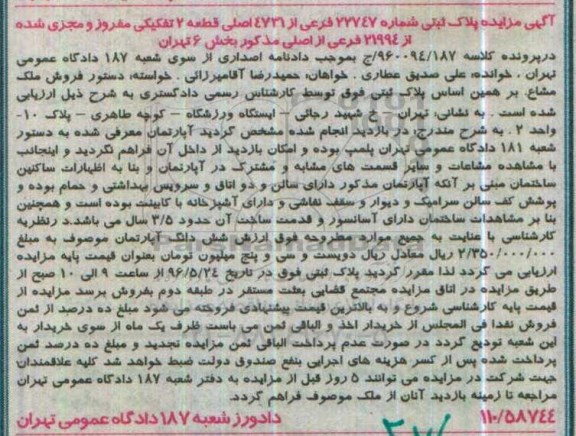 آگهی مزایده پلاک ثبتی شماره ۲۲۷۴۷ فرعی از ۴۷۳۱ اصلی قطعه ۲ تفکیکی مفروز و مجزی شده
از ۲۱۹۹۴ فرعی از اصلی مذکور بخش ۶ تهران
درپرونده کلاسه ۹۶۰۰۹۴/۱۸۷/ج بموجب دادنامه اصداری از سوی شعبه ۱۸۷ دادگاه عمومی
تهران ، خوانده: علی صدیق عطاری . خواهان: حمیدرضا آقامیرزائی . خواسته: دستور فروش ملک
مشاع. بر همین اساس پلاک ثبتی فوق توسط کارشناس رسمی دادگستری به شرح ذیل ارزیابی
شده است . به نشانی: تهران - خ شهید رجائی - ایستگاه ورزشگاه - کوچه طاهری - پلاک ۱۰-
واحد ۲ . به شرح مندرج: در بازدید انجام شده مشخص گردید آپارتمان معرفی شده به دستور
شعبه ۱۸۱ دادگاه عمومی تهران پلمب بوده و امکان بازدید از داخل آن فراهم نگردید و اینجانب
با مشاهده مشاعات و سایر قسمت های مشابه و مشترک در آپارتمان و بنا به اظهارات ساکنین
ساختمان مبنی بر آنکه آپارتمان مذکور دارای سالن و دو اتاق و سرویس بهداشتی و حمام بوده و
پوشش کف سالن سرامیک و دیوار و سقف نقاشی و دارای آشپزخانه با کابینت بوده است و همچنین
بنا بر مشاهدات ساختمان دارای آسانسور و قدمت ساخت آن حدود ۳/۵ سال می باشد.د رنظریه
کارشناسی با عنایت به جمیع موارد مطروحه فوق ارزش شش دانگ آپارتمان موصوف به مبلغ
۲/۳۵۰/۰۰۰/۰۰۰ ریال معادل ریال دویست و سی و پنج میلیون تومان بعنوان قیمت پایه مزایده
ارزیابی می گردد لذا مقرر گردید پلاک ثبتی فوق در تاریخ ۹۶/۵/۲۴ از ساعت ۹ الی ۱۰ صبح از
طریق مزایده در اتاق مزایده مجتمع قضایی بعثت مستقر در طبقه دوم بفروش برسد مزایده از
قیمت پایه کارشناسی شروع و به بالاترین قیمت پیشنهادی فروخته می شود مبلغ ده درصد از ثمن
فروش نقدا فی المجلس از خریدار اخذ و الباقی ثمن می بایست ظرف یک ماه از سوی خریدار به
این شعبه تودیع گردد در صورت عدم پرداخت الباقی ثمن مزایده تجدید و مبلغ ده درصد ثمن
پرداخت شده پس از کسر هزینه های اجرایی بنفع صندوق دولت ضبط خواهد شد کلیه علاقمندان
جهت شرکت در مزایده می توانند ۵ روز قبل از مزایده به دفتر شعبه ۱۸۷ دادگاه عمومی تهران
مراجعه تا زمینه بازدید آنان از ملک موصوف فراهم گردد.
۱۱۰/۵۸۷۴۴ دادورز شعبه ۱۸۷ دادگاه عمومی تهران